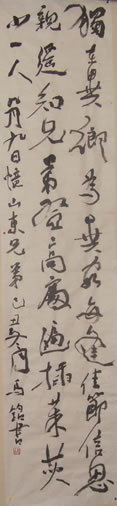 獨在異鄉為異客每逢佳節倍思
親遙知兄弟登高處遍插茱萸
少一人 九月九日憶山東兄弟 己丑 月 馬銘書